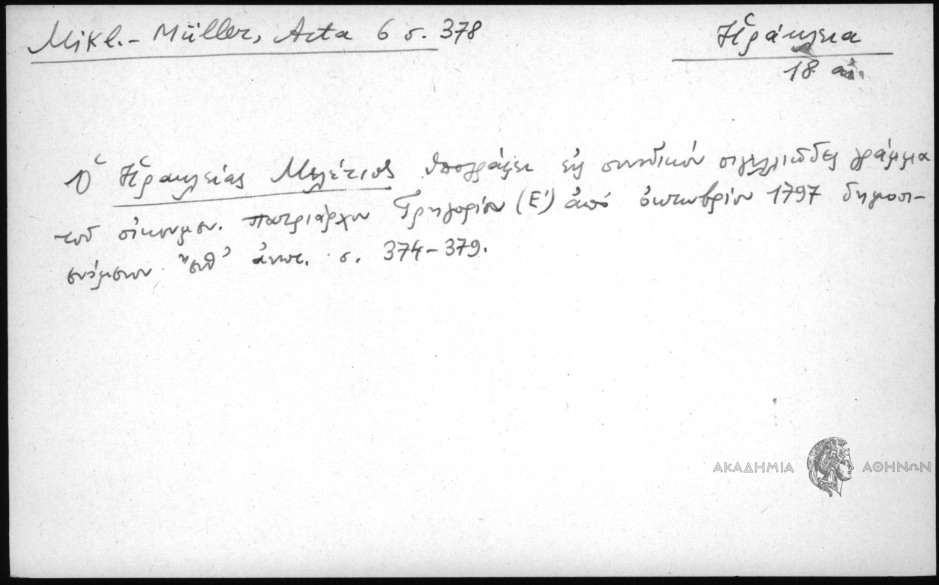 Mikl.- Müller, Acta 6 σ. 378
Ἡράκλεια
18 αἰ.
Ὁ Ἡρακλείας Μελέτιος ὑπογράφει εἰς συνοδικόν σιγιλλιῶδες γράμμα
τοῦ οἰκουμεν. πατριάρχου Γρηγορίου (Ε') ἀπό ὀκτωβρίου 1797 δημοσι-
ευόμενον ἀνωτ. σ. 374-379.
ΑΚΑΔΗΜΙΑ ΑΘΗΝΩΝ